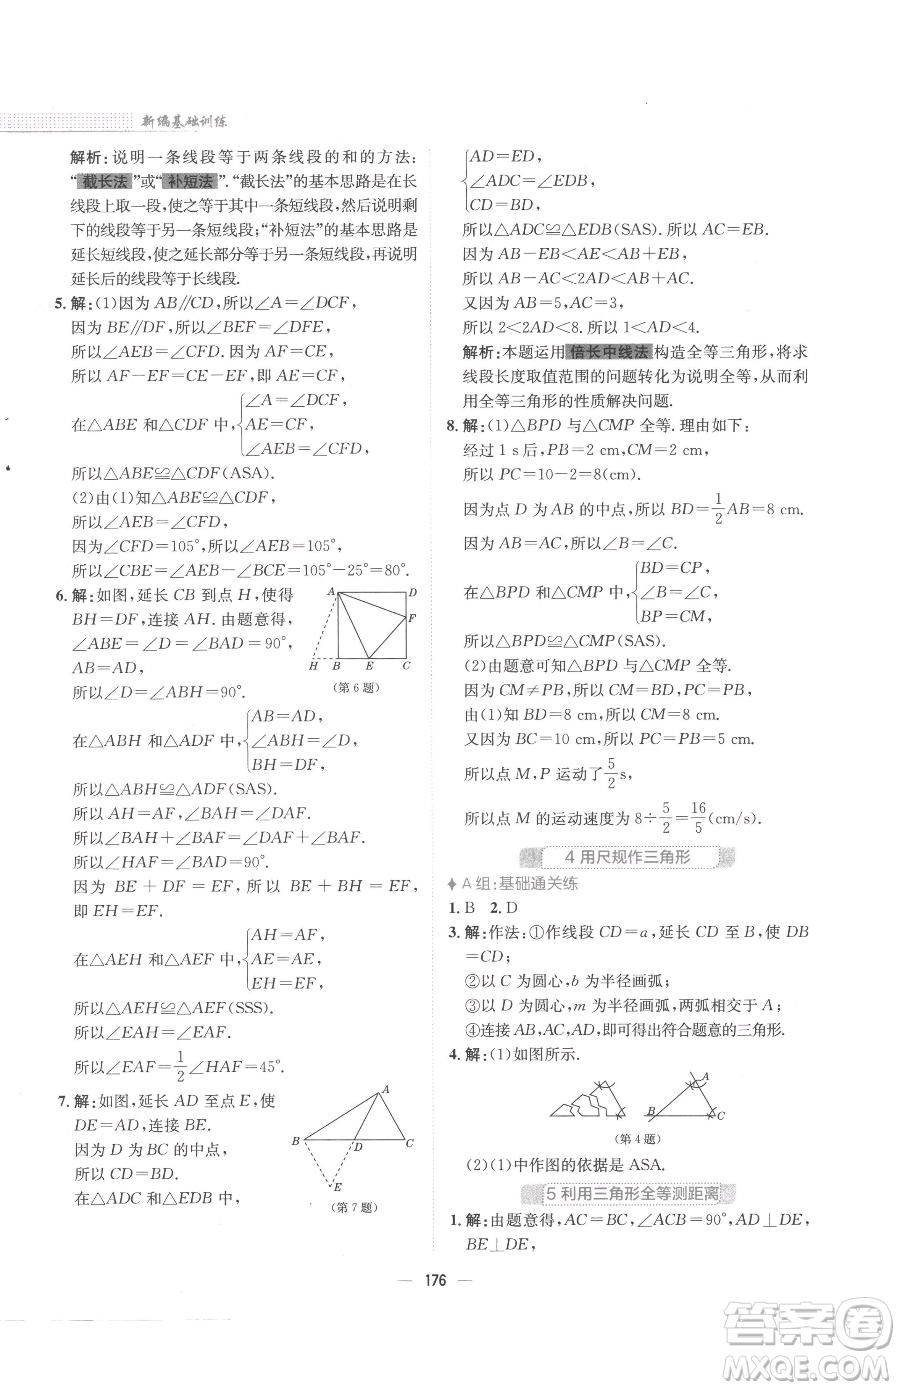 新编基础训练
解析:说明一条线段等于两条线段的和的方法:
“截长法”或“补短法”.“截长法”的基本思路是在长
线段上取一段,使之等于其中一条短线段,然后说明剩
下的线段等于另一条短线段;“补短法”的基本思路是
延长短线段,使之延长部分等于另一条短线段,再说明
延长后的线段等于长线段.
5. 解:(1)因为 AB∥CD,所以∠A=∠DCF,
因为 BE∥DF,所以∠BEF=∠DFE,
因为 AF=CE,
所以 AF-EF=CE-EF,即 AE=CF,
在△ABE 和△CDF 中,{∠A=∠DCF,
AE=CF,
∠AEB=∠CFD,
所以△ABE≌△CDF(ASA).
(2)由(1)知△ABE≌△CDF,
所以∠AEB=∠CFD,
因为∠CFD=105°,所以∠AEB=105°,
所以∠CBE=∠AEB-∠BCE=105°-25°=80°.
6. 解:如图,延长 CB 到点 H,使得
BH=DF,连接 AH. 由题意得,
∠ABE=∠D=∠BAD=90°,
AB=AD,
所以∠D=∠ABH=90°.
A D F H B E C
(第 6 题)
在△ABH 和△ADF 中,{AB=AD,
∠ABH=∠D,
BH=DF,
所以△ABH≌△ADF(SAS).
所以 AH=AF,∠BAH=∠DAF.
所以∠BAH+∠BAF=∠DAF+∠BAF.
所以∠HAF=∠BAD=90°.
因为 BE+DF=EF,所以 BE+BH=EF,
即 EH=EF.
在△AEH 和△AEF 中,{AH=AF,
AE=AE,
EH=EF,
所以△AEH≌△AEF(SSS).
所以∠EAH=∠EAF.
所以∠EAF=1/2∠HAF=45°.
7. 解:如图,延长 AD 至点 E,使
DE=AD,连接 BE.
因为 D 为 BC 的中点,
所以 CD=BD.
在△ADC 和△EDB 中,
A B D C E
(第 7 题)
{AD=ED,
∠ADC=∠EDB,
CD=BD,
所以△ADC≌△EDB(SAS). 所以 AC=EB.
因为 AB-BE<AE<AB+BE,
所以 AB-AC<2AD<AB+AC.
又因为 AB=5,AC=3,
所以 2<2AD<8. 所以 1<AD<4.
解析:本题运用倍长中线法构造全等三角形,将求
线段长度取值范围的问题转化为说明全等,从而利
用全等三角形的性质解决问题.
8. 解:(1)△BPD 与△CMP 全等. 理由如下:
经过 1 s后,PB=2 cm,CM=2 cm,
所以 PC=10-2=8(cm).
因为点 D 为 AB 的中点,所以 BD=1/2AB=8 cm.
因为 AB=AC,所以∠B=∠C.
在△BPD 和△CMP 中,{BD=CP,
∠B=∠C,
BP=CM,
所以△BPD≌△CMP(SAS).
(2)由题意可知△BPD 与△CMP 全等.
因为 CM≠PB,所以 CM=BD,PC=PB,
由(1)知 BD=8 cm,所以 CM=8 cm.
又因为 BC=10 cm,所以 PC=PB=5 cm,
所以点 M,P 运动了5/2s,
所以点 M 的运动速度为 8÷5/2=16/5(cm/s).
4 用尺规作三角形
A 组:基础通关练
1. B 2. D
3. 解:作法:①作线段 CD=a,延长 CD 至 B,使 DB
=CD;
②以 C 为圆心,b 为半径画弧;
③以 D 为圆心,m 为半径画弧,两弧相交于 A;
④连接 AB,AC,AD,即可得出符合题意的三角形.
4. 解:(1)如图所示.
A B C
(第 4 题)
(2)(1)中作图的依据是 ASA.
5 利用三角形全等测距离
1. 解:由题意得,AC=BC,∠ACB=90°,AD⊥DE,
BE⊥DE,
176
答案卷
MXQE.COM